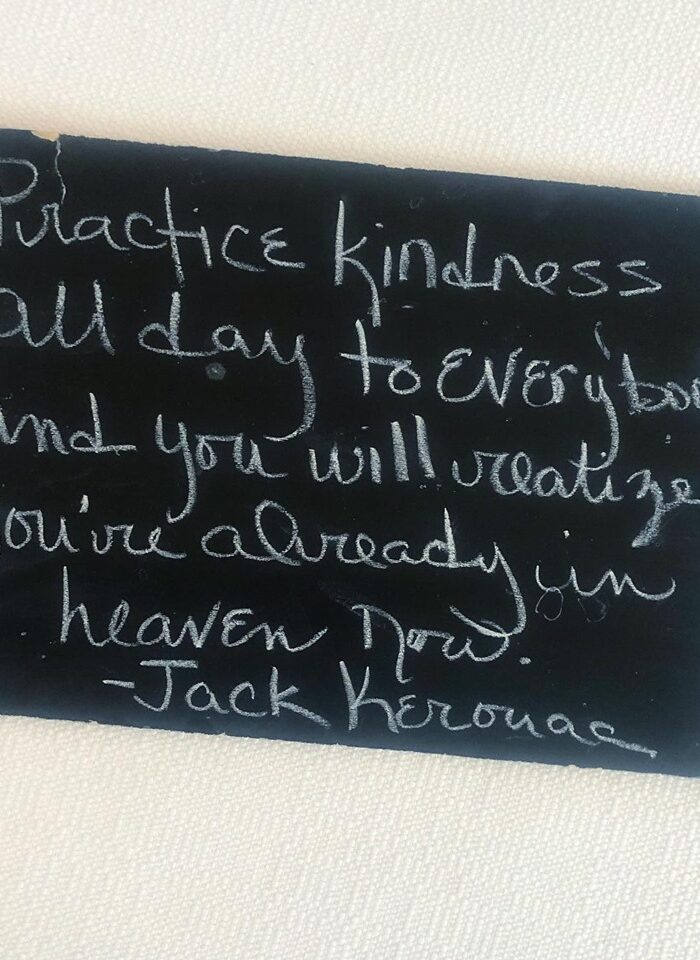 Practice kindness
all day to everybod
and you will realize
you're already in
heaven now.
-Jack Kerouac